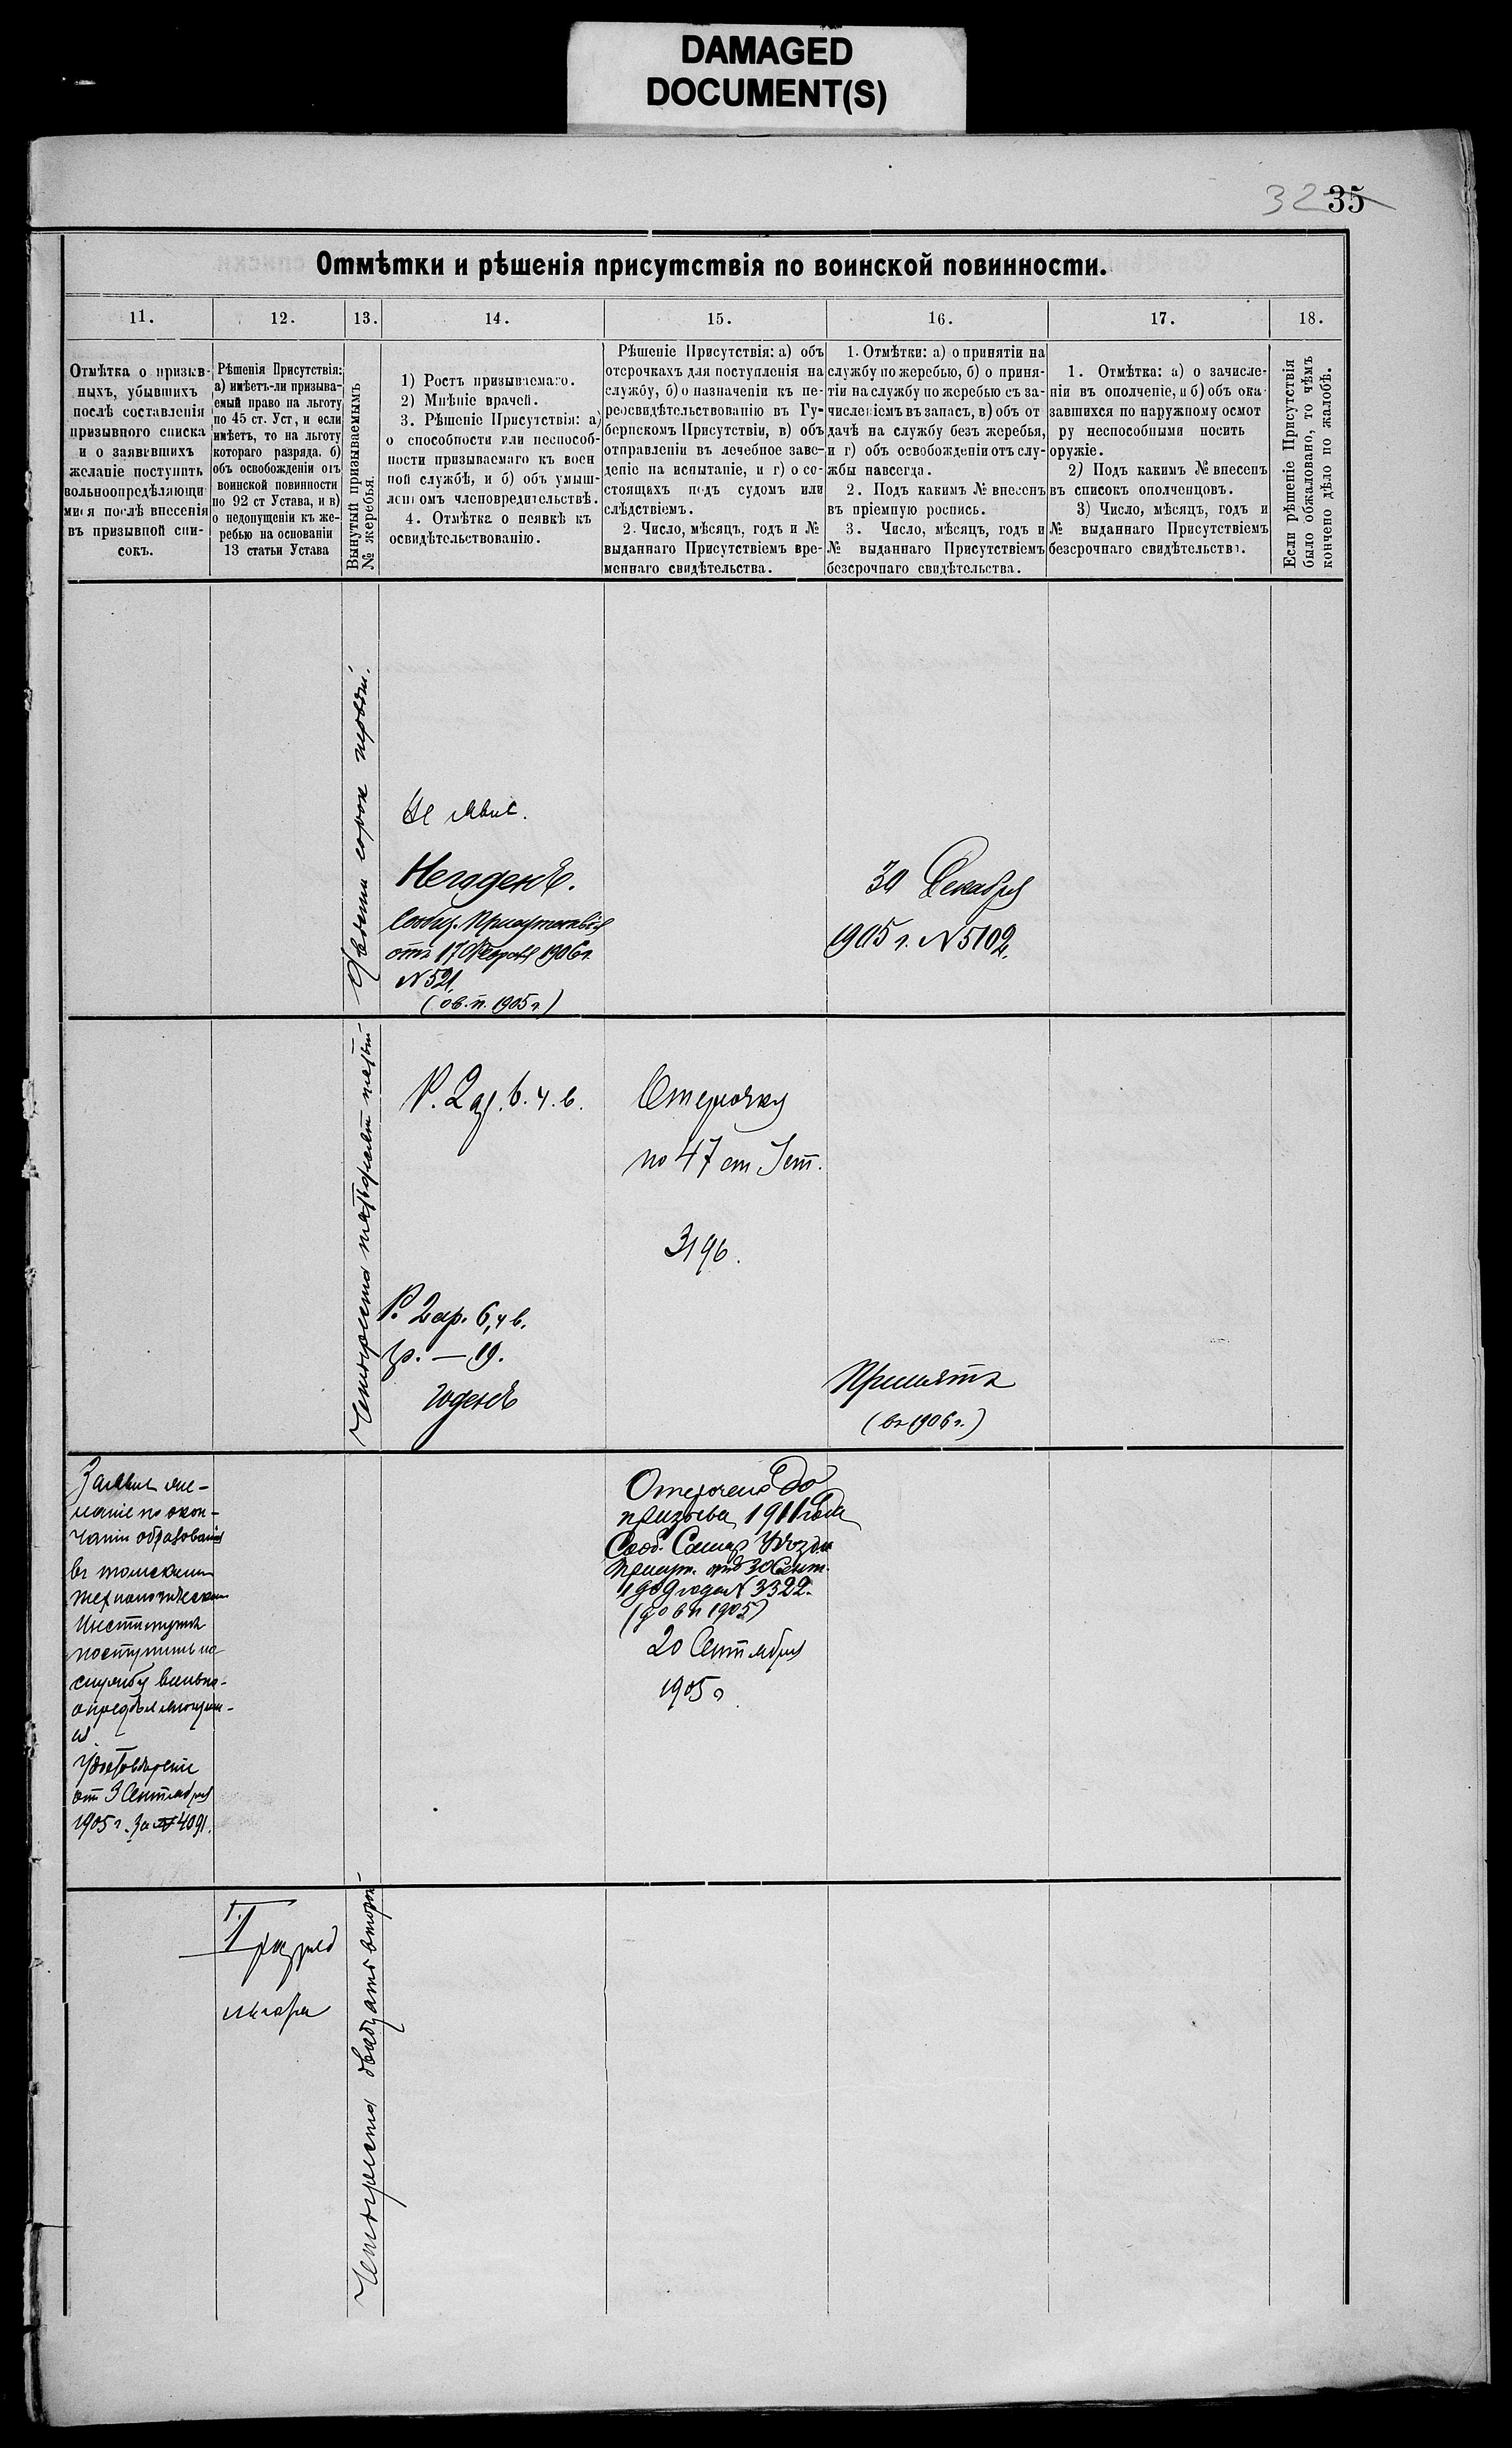 DAMAGED
DOCUMENT(S)
32 35
Отмѣтки и рѣшенія присутствія по воинской повинности.
11. 12. 13. 14. 15. 16. 17. 18.
Отмѣтка о призыв-
ныхъ, убывшихъ
послѣ составленія
призывного списка
и о заявившихъ
желаніе поступить
вольноопредѣляющи
мися послѣ внесенія
въ призывной спи-
сокъ.
Рѣшенія Присутствія:
а) имѣетъ-ли призыва-
емый право на льготу
по 45 ст. Уст, и если
имѣетъ, то на льготу
котораго разряда. б)
объ освобожденіи отъ
воинской повинности
по 92 ст Устава, и в)
о недопущеніи къ же-
ребью на основаніи
13 статьи Устава
Вынутый призываемымъ
№ жеребья.
1) Ростъ призываемаго.
2) Мнѣніе врачей.
3. Рѣшеніе Присутствія: а)
о способности или неспособ-
ности призываемаго къ воен
ной службѣ, и б) объ умыш-
ленномъ членовредительствѣ.
4. Отмѣтка о неявкѣ къ
освидѣтельствованію.
Рѣшеніе Присутствія: а) объ
отсрочкахъ для поступленія на
службу, б) о назначеніи къ пе-
реосвидѣтельствованію въ Гу-
бернскомъ Присутствіи, в) объ
отправленіи въ лечебное заве-
деніе на испытаніе, и г) о со-
стоящихъ подъ судомъ или
слѣдствіемъ.
2. Число, мѣсяцъ, годъ и №
выданнаго Присутствіемъ вре-
меннаго свидѣтельства.
1. Отмѣтки: а) о принятіи на
службу по жеребью, б) о приня-
тіи на службу по жеребью съ за-
численіемъ въ запасъ, в) объ от
дачѣ на службу безъ жеребья,
и г) объ освобожденіи отъ слу-
жбы навсегда.
2. Подъ какимъ № внесенъ
въ пріемную роспись.
3. Число, мѣсяцъ, годъ и
№ выданнаго Присутствіемъ
безсрочнаго свидѣтельства.
1. Отмѣтка: а) о зачисле-
ніи въ ополченіе, и б) объ ока
завшихся по наружному осмот
ру неспособными носить
оружіе.
2) Подъ какимъ № внесенъ
въ списокъ ополченцовъ.
3) Число, мѣсяцъ, годъ и
№ выданнаго Присутствіемъ
безсрочнаго свидѣтельства.
Если рѣшеніе Присутствія
было обжаловано, то чѣмъ
кончено дѣло по жалобѣ.
Двѣсти сорок первый.
Не явил.
Негоденъ.
Сообщ. Присутствія
отъ 17 Февраля 1906 г.
№ 521.
30 Декабря
1905 г. № 5102.
Р. 2 ар. 6. ч. в.
Отсрочка
по 47 ст Уст.
3196.
Р. 2 ар. 6, ч в.
гр. — 19.
годенъ
Принятъ
(въ 1906 г.)
Заявил же-
ланіе по окон-
чаніи образованія
въ томскомъ
технологическом
Институтѣ
поступить на
службу вольно-
опредѣляющим-
ся.
Удостовѣреніе
от 3 Сентября
1905 г. за № 4091.
Отсрочено до
призыва 1911 года
Сооб. Самар Уѣздн
Присут. отъ 30 Сент.
1909 года № 3322.
20 Сентября
1905 г.
I разряд
Четыреста двадцать второй